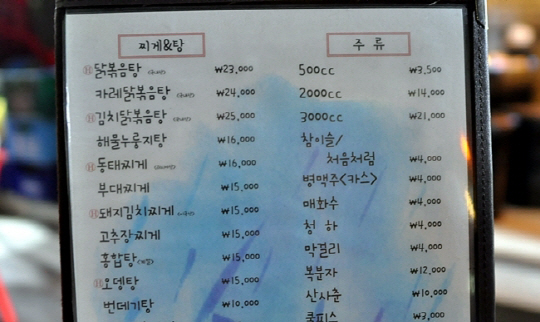 찌게&탕
닭볶음탕 ₩23,000
카레닭볶음탕 ₩24,000
김치닭볶음탕 ₩25,000
해물누룽지탕 ₩16,000
동태찌게 ₩16,000
부대찌게 ₩15,000
돼지김치찌게 ₩15,000
고추장찌게 ₩15,000
홍합탕 ₩15,000
오뎅탕 ₩15,000
번데기탕 ₩10,000
주 류
500cc ₩3,500
2000cc ₩14,000
3000cc ₩21,000
참이슬/
처음처럼 ₩4,000
병맥주<카스> ₩4,000
매화수 ₩4,000
청 하 ₩4,000
막걸리 ₩4,000
복분자 ₩12,000
산사춘 ₩10,000
쿨피스 ₩3,000